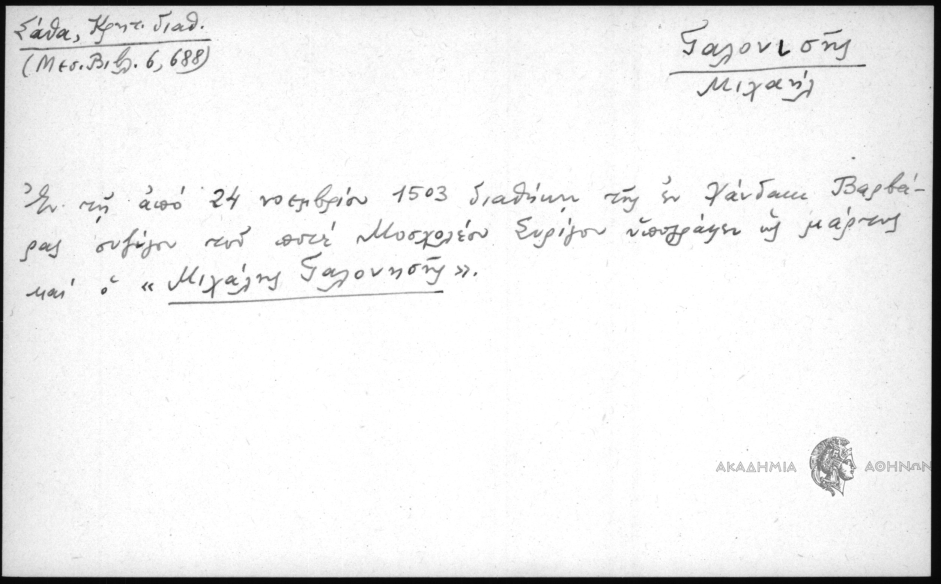 Σάθα, Κρητ. διαθ.
(Μεσ. Βιβλ. 6, 688)
Γαλονισῆς
Μιχαήλ
Ἐν τῇ ἀπό 24 νοεμβρίου 1503 διαθήκῃ τῆς ἐν Χάνδακι Βαρβά-
ρας συζύγου τοῦ ποτέ Μοσχολέου Συρίγου ὑπογράφει ὡς μάρτυς
καί ὁ « Μιχάλης Γαλονησῆς ».
ΑΚΑΔΗΜΙΑ ΑΘΗΝΩΝ